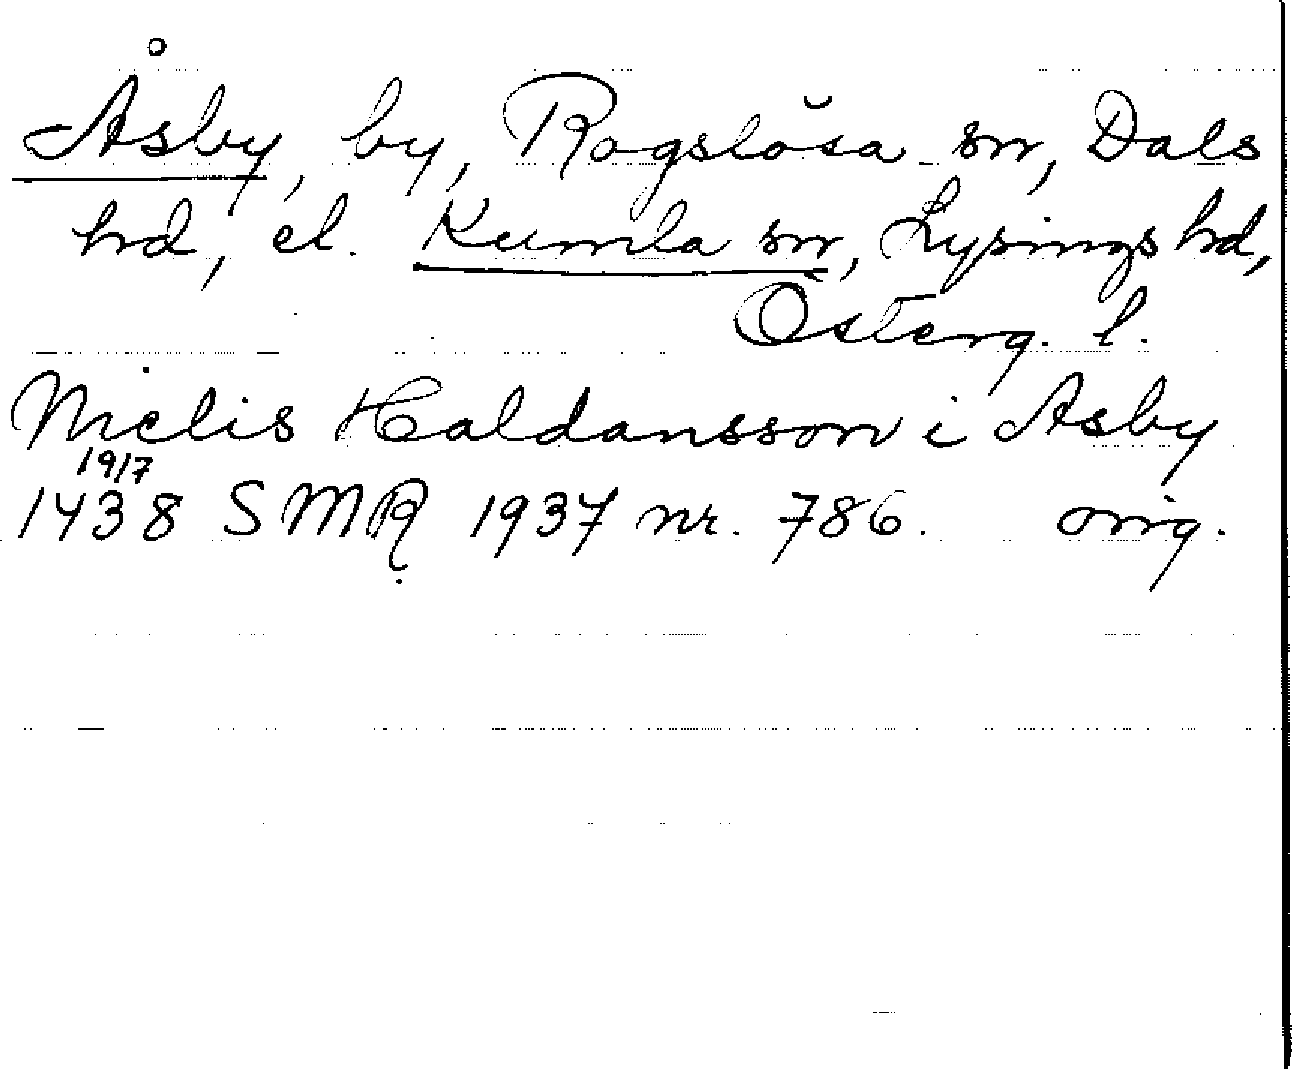 Åsby, by, Rogslösa sn, Dals
hd, el. Kumla sn, Lysings hd,
Österg. l.
Nielis Haldansson i Asby
19/7
1438 SMR 1937 nr. 786. orig.